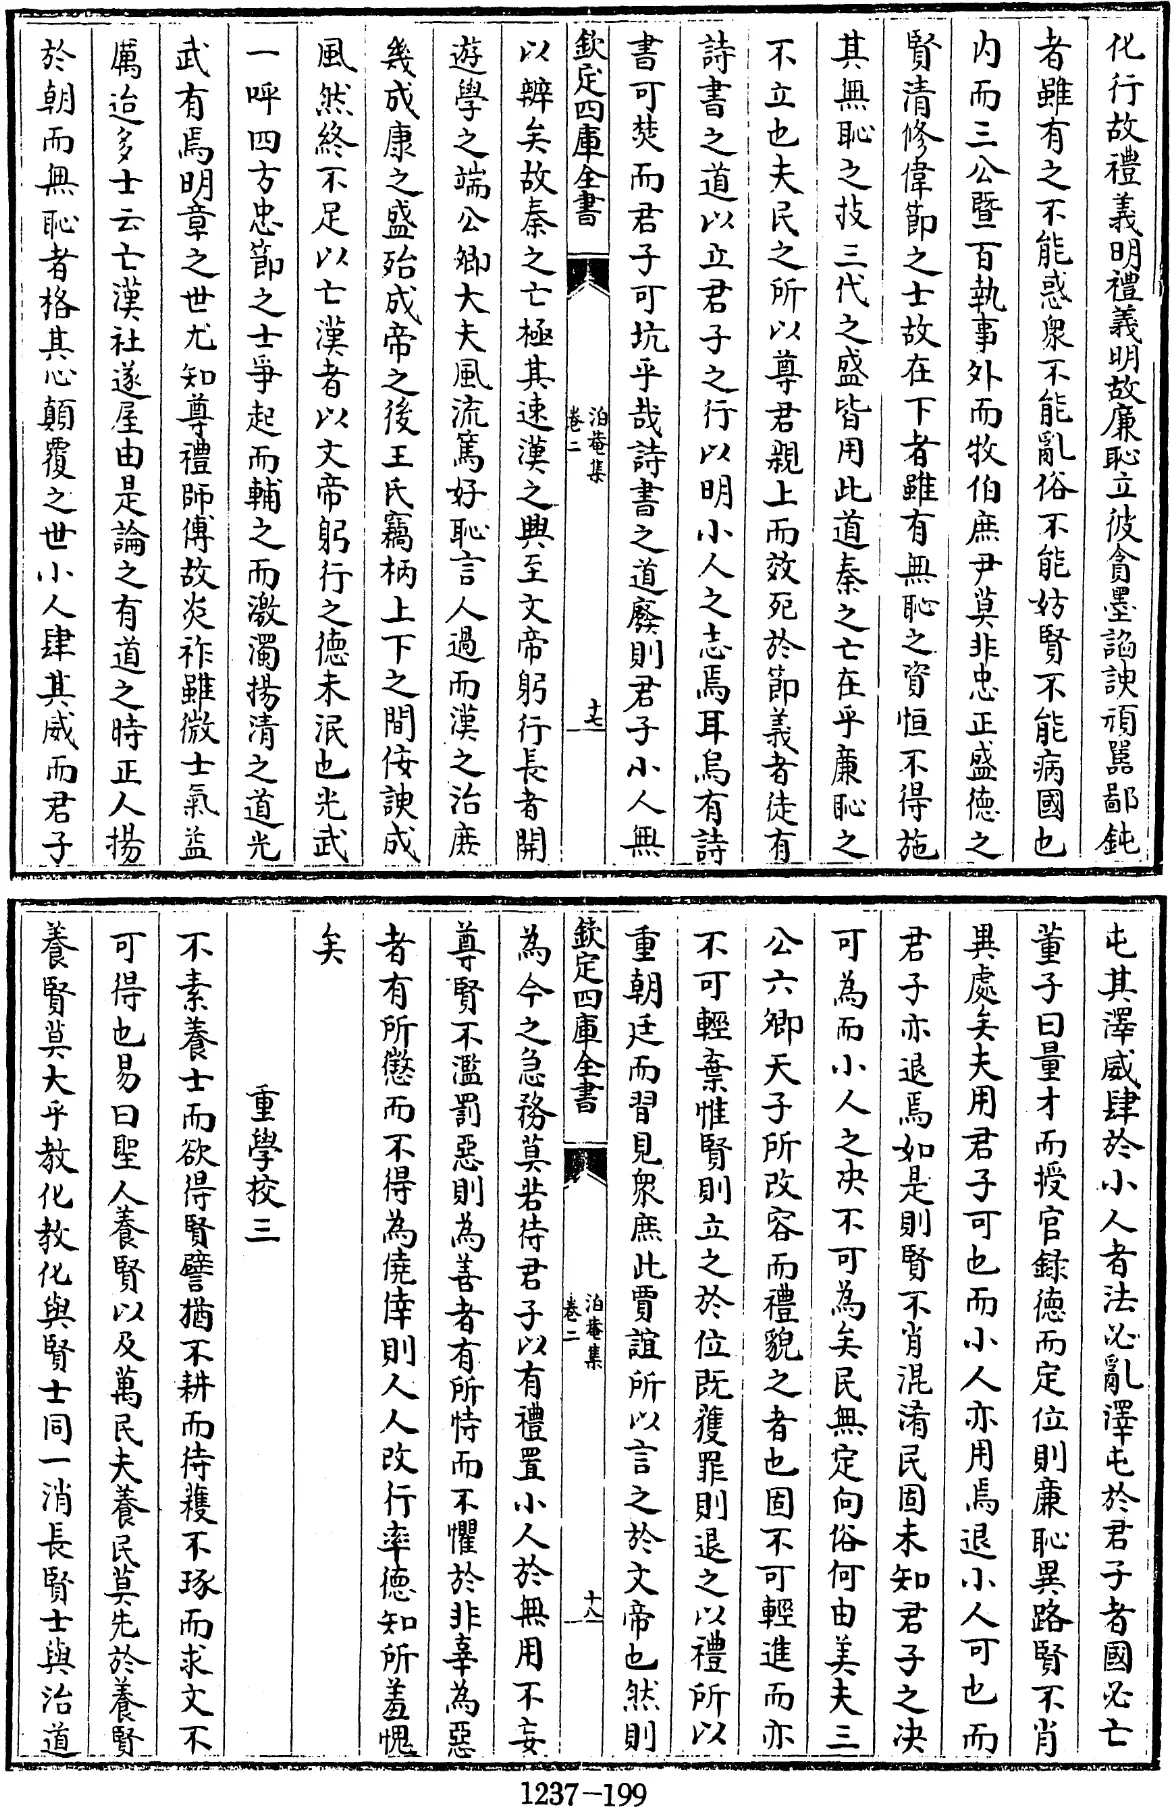 化行故禮義明禮義明故廉恥立彼貪墨諂諛頑嚚鄙鈍
者雖有之不能惑衆不能亂俗不能妨賢不能病國也
内而三公暨百執事外而牧伯庶尹莫非忠正盛德之
賢清修偉節之士故在下者雖有無恥之資恒不得施
其無恥之技三代之盛皆用此道秦之亡在乎廉恥之
不立也夫民之所以尊君親上而效死於節義者徒有
詩書之道以立君子之行以明小人之志焉耳烏有詩
書可焚而君子可坑乎哉詩書之道廢則君子小人無
欽定四庫全書
泊菴集
卷二
十七
以辨矣故秦之亡極其速漢之興至文帝躬行長者開
遊學之端公卿大夫風流篤好恥言人過而漢之治庶
幾成康之盛殆成帝之後王氏竊柄上下之間佞諛成
風然終不足以亡漢者以文帝躬行之德未泯也光武
一呼四方忠節之士爭起而輔之而激濁揚清之道光
武有焉明章之世尤知尊禮師傅故炎祚雖微士氣益
厲迨多士云亡漢社遂屋由是論之有道之時正人揚
於朝而無恥者格其心顛覆之世小人肆其威而君子
屯其澤威肆於小人者法必亂澤屯於君子者國必亡
董子曰量才而授官録德而定位則廉恥異路賢不肖
異處矣夫用君子可也而小人亦用焉退小人可也而
君子亦退焉如是則賢不肖混淆民固未知君子之决
可為而小人之决不可為矣民無定向俗何由美夫三
公六卿天子所改容而禮貌之者也固不可輕進而亦
不可輕棄惟賢則立之於位既獲罪則退之以禮所以
重朝廷而習見衆庶此賈誼所以言之於文帝也然則
欽定四庫全書
泊菴集
卷二
十八
為今之急務莫若待君子以有禮置小人於無用不妄
尊賢不濫罰惡則為善者有所恃而不懼於非辜為惡
者有所懲而不得為僥倖則人人改行率德知所羞愧
矣
重學校三
不素養士而欲得賢譬猶不耕而待穫不琢而求文不
可得也易曰聖人養賢以及萬民夫養民莫先於養賢
養賢莫大乎教化教化與賢士同一消長賢士與治道
1237-199